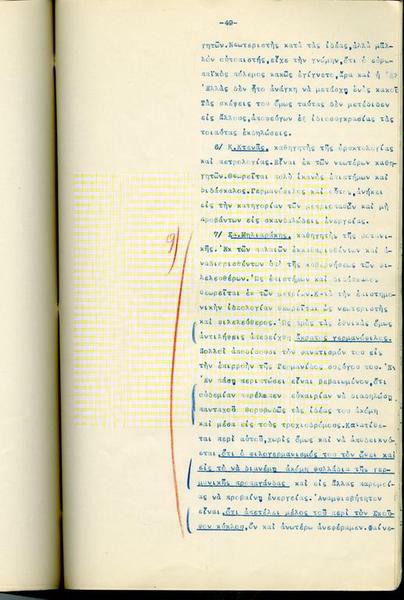 -49-
γητῶν.Νεωτεριστής κατά τάς ἰδέας,ἀλλά μᾶλ-
λόν οὐτοπιστής,εἶχε τήν γνώμην,ὅτι ὁ εὐρω-
παϊκός πόλεμος κακῶς ἐγίνετο,ἄρα καί ἡ Ἑλ
Ἑλλάς δέν ἦτο ἀνάγκη νά μετάσχη ἑνός κακοῦ
Τάς σκέψεις του ὅμως ταύτας δέν μετέδιδεν
εἰς ἄλλους,ἀποφεύγων ἐξ ἰδιοσυγκρασίας τάς
τοιαύτας ἐκδηλώσεις.
6/ Κ.Κτενᾶς, καθηγητής τῆς ὀρυκτολογίας
καί πετρολογίας.Εἶναι ἐκ τῶν νεωτέρων καθη-
γητῶν.Θεωρεῖται πολύ ἱκανός ἐπιστήμων καί
διδάσκαλος.Γερμανόφιλος καί οὗτος,ἀνήκει
εἰς τήν κατηγορίαν τῶν μετριοπαθῶν καί μή
προβάντων εἰς σκανδαλώδεις ἐνεργείας.
7/ Σπ.Μηλιαράκης, καθηγητής τῆς βοτανι-
κῆς.Ἐκ τῶν παλαιῶν ἐκκαθαρισθέντων καί ἀ-
ναδιορισθέντων ὑπό τῆς κυβερνήσεως τῶν φι-
λελευθέρων.Ὡς ἐπιστήμων καί διδάσκαλος
θεωρεῖται ἐκ τῶν μετρίων.Κατά τήν ἐπιστημο-
νικήν ἰδεολογίαν θεωρεῖται ὡς νεωτεριστής
καί φιλελεύθερος.Ὡς πρός τάς ἐθνικάς ὅμως
ἀντιλήψεις ἀπεδείχθη ἄκρατος γερμανόφιλος.
Πολλοί ἀποδίδουσι τόν φανατισμόν του εἰς
τήν ἐπιρροήν τῆς Γερμανίδος συζύγου του.Ἐν
Ἐν πάση περιπτώσει εἶναι βεβαιωμένον,ὅτι
οὐδεμίαν παρέλειπεν εὐκαιρίαν νά διαδηλώση
πανταχοῦ θορυβωδῶς τάς ἰδέας του ἀκόμη
καί μέσα εἰς τούς τροχιοδρόμους.Καταγγέ-
ται περί αὐτοῦ,χωρίς ὅμως καί νά ἀποδεικνύ-
εται,ὅτι ὁ φιλογερμανισμός του τόν ὤθει καί
εἰς τό νά διανέμη ἀκόμη φυλλάδια τῆς γερ-
μανικῆς προπαγάνδας καί εἰς ἄλλας παρομοί-
ας νά προβαίνη ἐνεργείας.Ἀναμφισβήτητον
εἶναι,ὅτι ἀπετέλει μέλος τοῦ περί τόν Σκοῦ-
φον κύκλου,ὧν καί ἀνωτέρω ἀνεφέραμεν.Φαίνε-